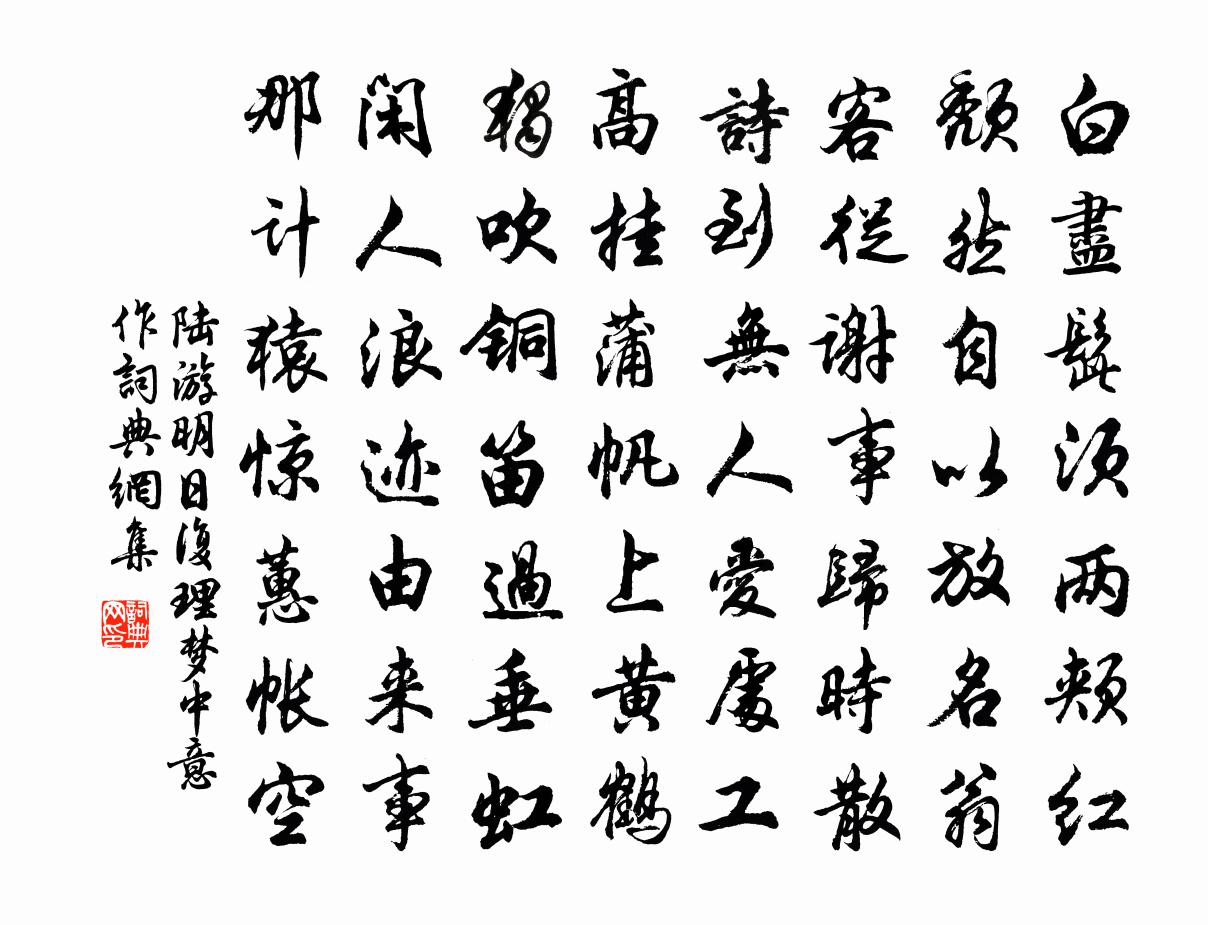 白盡髭须两頰红
頽然自以放名翁
客從謝事歸時散
詩到無人愛處工
高挂蒲帆上黄鶴
獨吹铜笛過垂虹
闲人浪迹由来事
那计猿惊蕙帐空
陆游明日復理梦中意
作詞典網集
詞典网印